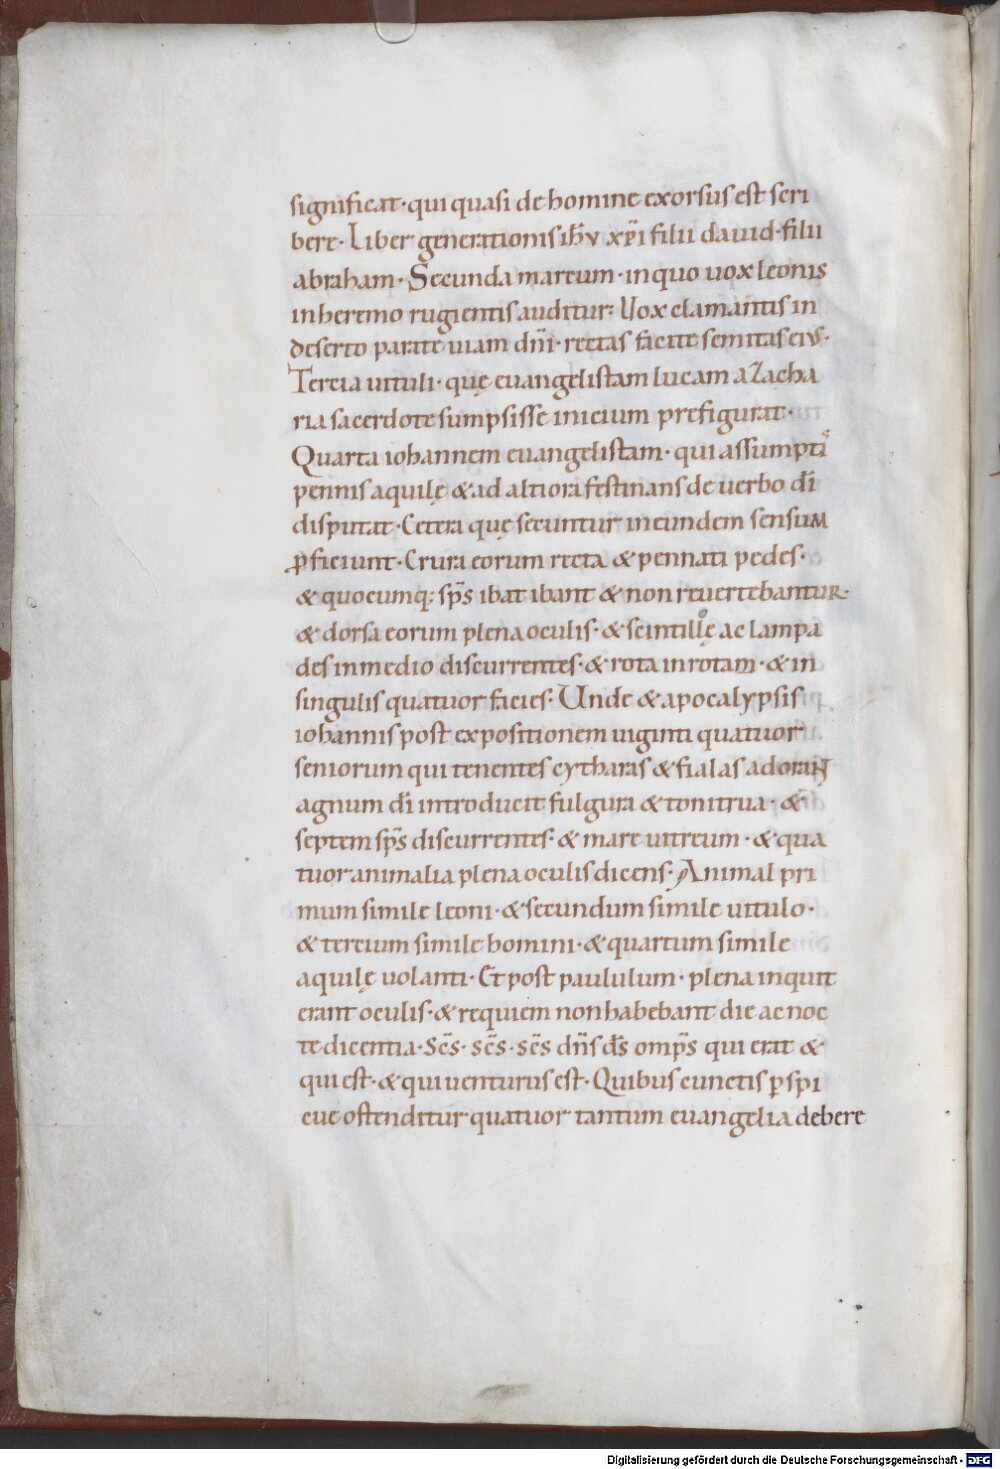 significat· qui quasi de homine exorsus est scri
bere· Liber generationis ih̅v xp̅i filii dauid· filii
abraham· Secunda marcum· in quo uox leonis
in heremo rugientis auditur: Uox clamantis in
deserto parate uiam dn̅i· rectas facite semitas eiꝰ·
Tercia uituli· quę euangelistam lucam a Zacha
ria sacerdote sumpsisse inicium prefigurat·
Quarta iohannem euangelistam· qui assumptꝭ
pennis aquilę & ad altiora festinans de uerbo di̅
disputat· Cetera quę secuntur in eundem sensum
ꝓficiunt· Crura eorum recta & pennati pedes·
& quocumq; sp̅s ibat ibant & non reuertebantur·
& dorsa eorum plena oculis· & scintillę ac lampa
des in medio discurrentes· & rota in rotam· & in
singulis quatuor facies· Unde & apocalypsis
iohannis post expositionem uiginti quatuor
seniorum qui tenentes cytharas & fialas adorant
agnum di̅ introducit fulgura & tonitrua· &
septem sp̅s discurrentes· & mare uitreum· & qua
tuor animalia plena oculis dicens· Animal pri
mum simile leoni· & secundum simile uitulo·
& tercium simile homini· & quartum simile
aquilę uolanti· Et post paululum· plena inquit
erant oculis· & requiem non habebant die ac noc
te dicentia· Sc̅s· sc̅s· sc̅s dn̅s ds̅ omp̅s qui erat &
qui est· & qui uenturus est· Quibus cunctis ꝑspi
cue ostenditur quatuor tantum euangelia debere
Digitalisierung gefördert durch die Deutsche Forschungsgemeinschaft - DFG